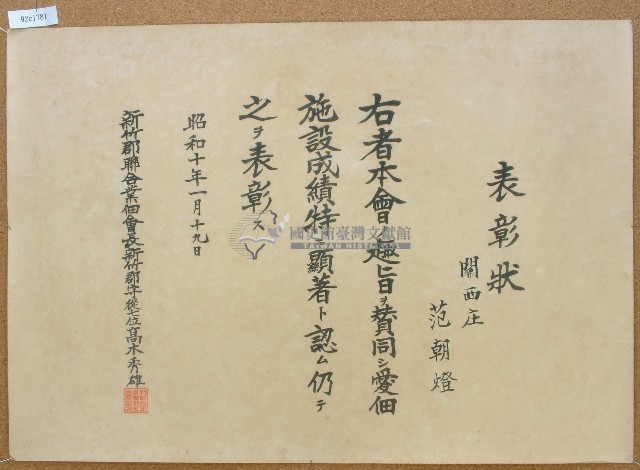 表彰狀
關西庄
范朝燈
右者本會ノ趣旨ヲ賛同シ愛佃
施設成績特ニ顯著ト認ム仍テ
之ヲ表彰ス
昭和十年一月十九日
新竹郡聯合業佃會長新竹郡守從六位髙木秀雄
92c1781
國史館臺灣文獻館
TAIWAN HISTORICA